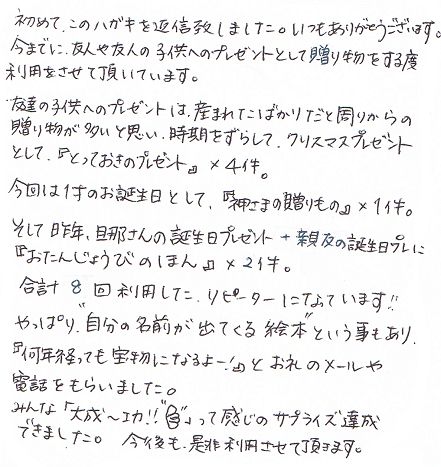 初めて、このハガキを返信致しました。いつもありがとうございます。
今までに、友人や友人の子供へのプレゼントとして贈り物をする度
利用をさせて頂いています。
友達の子供へのプレゼントは、産まれたばかりだと周りからの
贈り物が多いと思い、時期をずらして、クリスマスプレゼント
として、『とっておきのプレゼント』×4件。
今回は1才のお誕生日として、『神さまの贈りもの』×1件。
そして昨年、旦那さんの誕生日プレゼント + 親友の誕生日プレに
『おたんじょうびのほん』×2件。
合計 8 回利用した、リピーターになっています!!
やっぱり"自分の名前が出てくる絵本"という事もあり、
『何年経っても宝物になるよー!』とお礼のメールや
電話をもらいました。
みんな「大成～功!!」って感じのサプライズ達成
できました。今後も、是非利用させて頂きます。